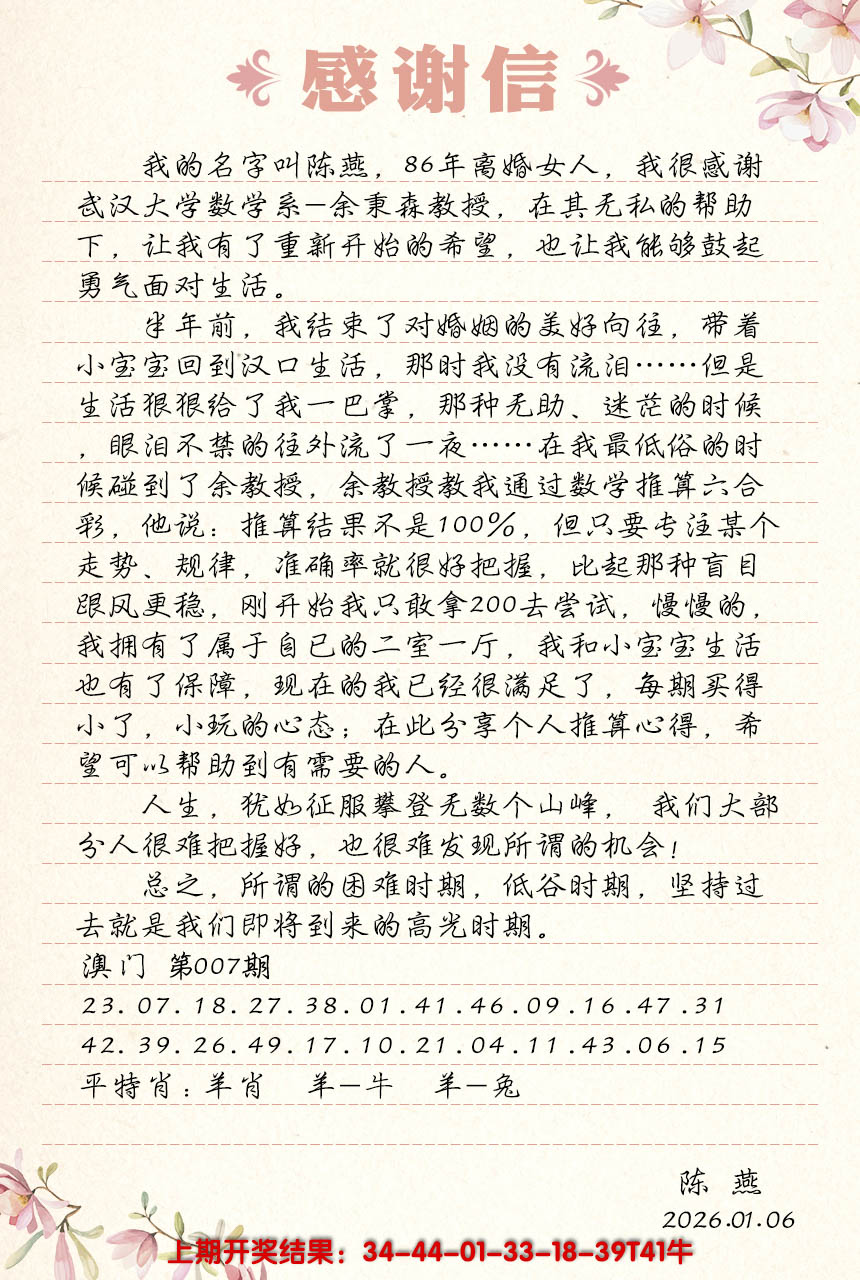 感谢信
我的名字叫陈燕，86年离婚女人，我很感谢
武汉大学数学系—余秉森教授，在其无私的帮助
下，让我有了重新开始的希望，也让我能够鼓起
勇气面对生活。
半年前，我结束了对婚姻的美好向往，带着
小宝宝回到汉口生活，那时我没有流泪……但是
生活狠狠给了我一巴掌，那种无助、迷茫的时候
，眼泪不禁的往外流了一夜……在我最低俗的时
候碰到了余教授，余教授教我通过数学推算六合
彩，他说：推算结果不是100%，但只要专注某个
走势、规律，准确率就很好把握，比起那种盲目
跟风更稳，刚开始我只敢拿200去尝试，慢慢的，
我拥有了属于自已的二室一厅，我和小宝宝生活
也有了保障，现在的我已经很满足了，每期买得
小了，小玩的心态；在此分享个人推算心得，希
望可以帮助到有需要的人。
人生，犹如征服攀登无数个山峰， 我们大部
分人很难把握好，也很难发现所谓的机会！
总之，所谓的困难时期，低谷时期，坚持过
去就是我们即将到来的高光时期。
澳门 第007期
23.07.18.27.38.01.41.46.09.16.47.31
42.39.26.49.17.10.21.04.11.43.06.15
平特肖：羊肖 羊—牛 羊—兔
陈 燕
2026.01.06
上期开奖结果：34-44-01-33-18-39T41牛